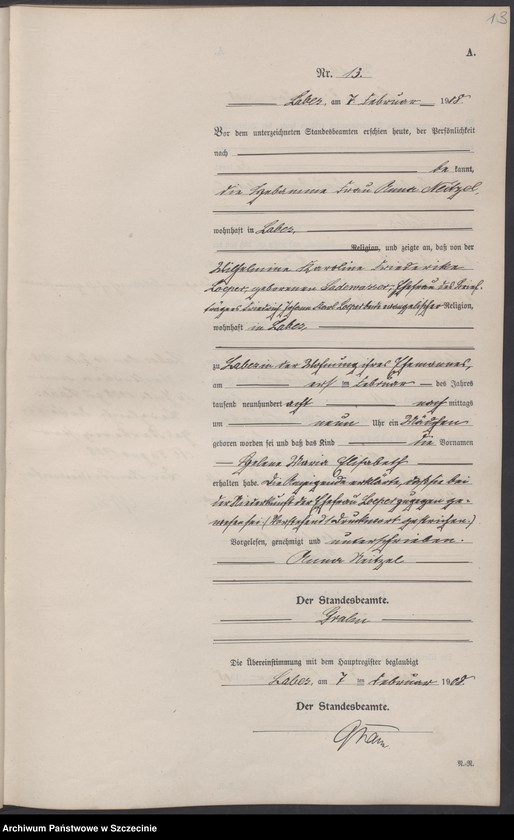 13
A.
Nr. 13.
Labes, am 7 Februar 1908.
Vor dem unterzeichneten Standesbeamten erschien heute, der Persönlichkeit
nach
be kannt,
die Hebamme Frau Anna Neitzel,
wohnhaft in Labes,
Religion, und zeigte an, daß von der
Wilhelmine Karoline Friederike
geborenen Ladewasser, Ehefrau des Brief-
trägers Johann Karl beide evangelischer Religion,
wohnhaft in Labes,
zu Labes in der Wohnung ihres Ehemannes,
am ten Februar des Jahres
tausend neunhundert acht nach mittags
um neun Uhr ein Mädchen
geboren worden sei und daß das Kind die Vornamen
Helene Maria Elisabeth
erhalten habe. Die Anzeigende erklärte, daß sie bei
der Niederkunft der Ehefrau zugegen ge-
wesen sei. (Vorstehend 1 Druckwort gestrichen.)
Vorgelesen, genehmigt und unterschrieben.
Anna Neitzel
Der Standesbeamte.
Die Übereinstimmung mit dem Hauptregister beglaubigt
Labes, am 7 ten Februar 1908.
Der Standesbeamte.
R.-R.
Archiwum Państwowe w Szczecinie